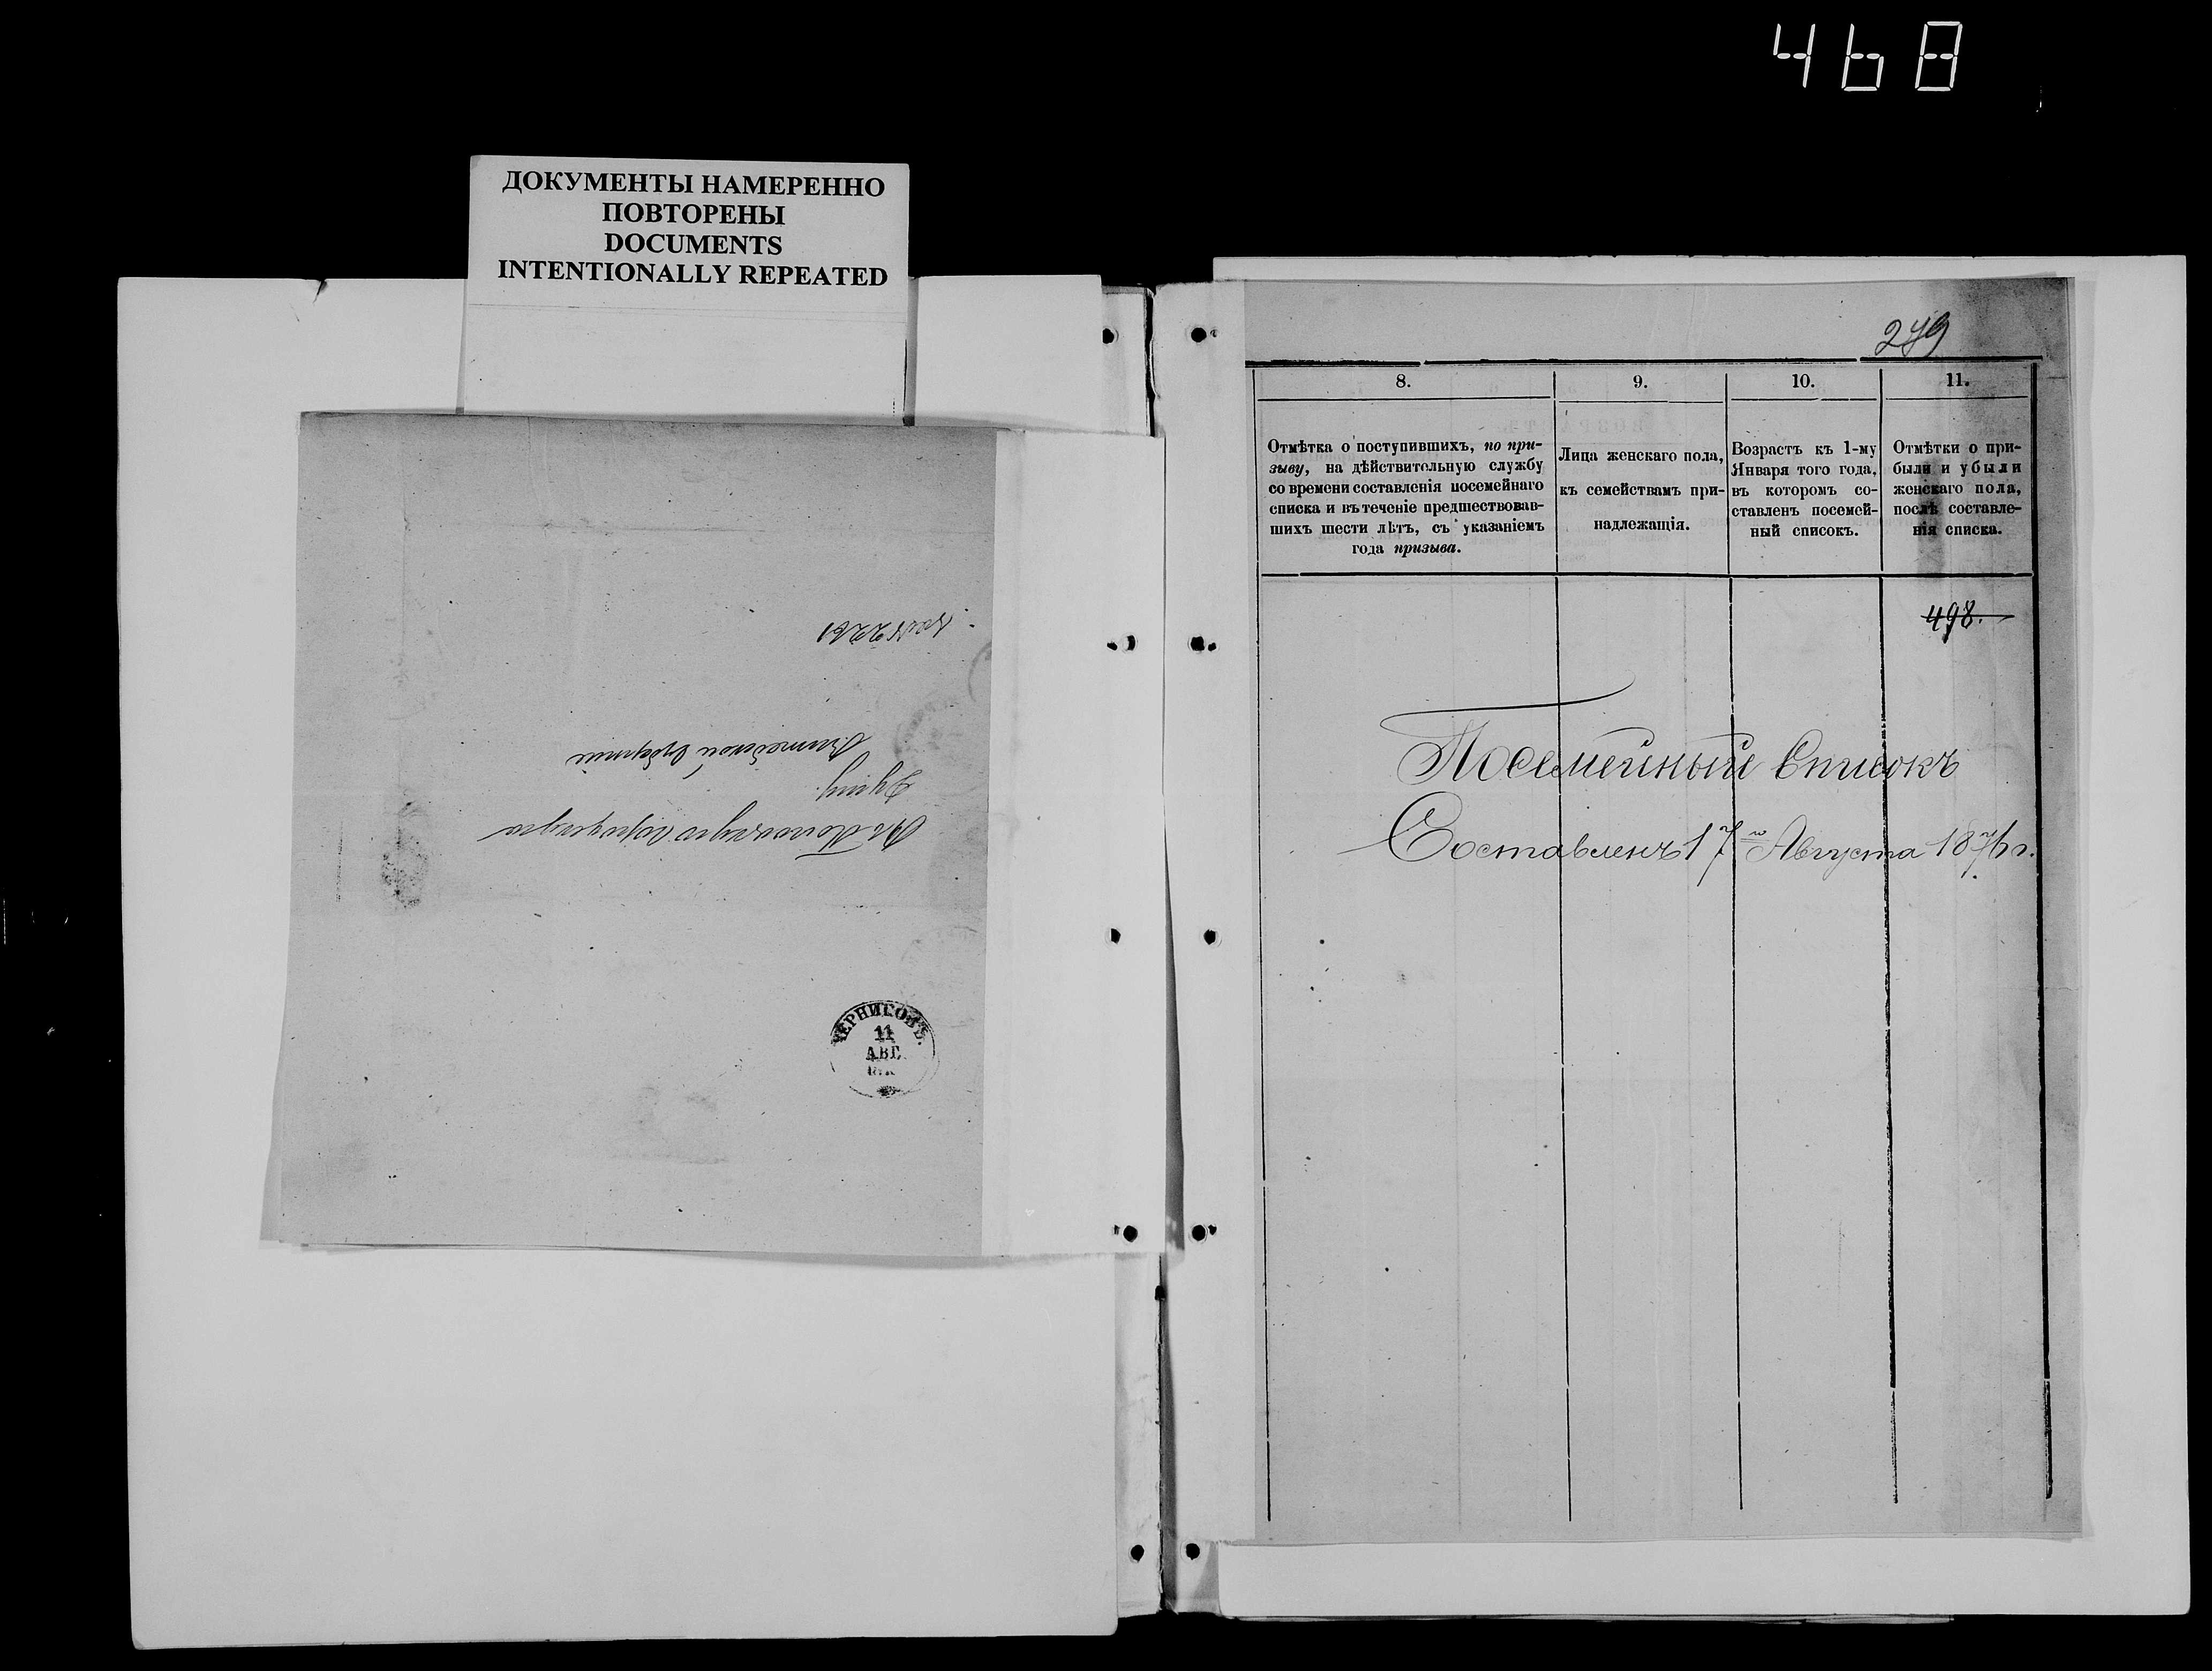 468
ДОКУМЕНТЫ НАМЕРЕННО
ПОВТОРЕНЫ
DOCUMENTS
INTENTIONALLY REPEATED
Въ Полоцкую городскую
Думу
Витебской Губерніи
ЧЕРНИГОВЪ.
11
АВГ.
279
8.
Отмѣтка о поступившихъ, по при-
зыву, на дѣйствительную службу
со времени составленія посемейнаго
списка и въ теченіе предшествовав-
шихъ шести лѣтъ, съ указаніемъ
года призыва.
9.
Лица женскаго пола,
къ семействамъ при-
надлежащія.
10.
Возрастъ къ 1-му
Января того года,
въ которомъ со-
ставленъ посемей-
ный списокъ.
11.
Отмѣтки о при-
были и убыли
женскаго пола,
послѣ составле-
нія списка.
498.
Посемейный Списокъ
Составленъ 17го Августа 1876 г.